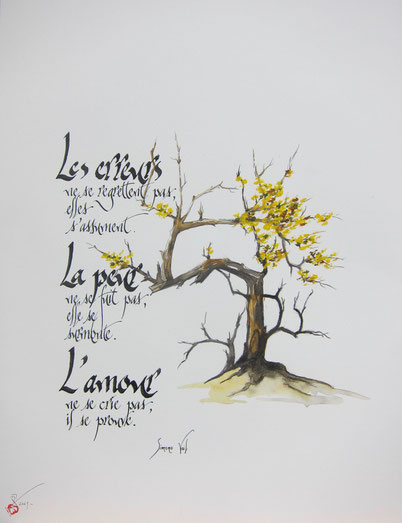 Les erreurs
ne se regrettent pas,
elles
s'assument.
La peur
ne se fuit pas,
elle se
surmonte.
L'amour
ne se crie pas,
il se prouve.
Simone Veil